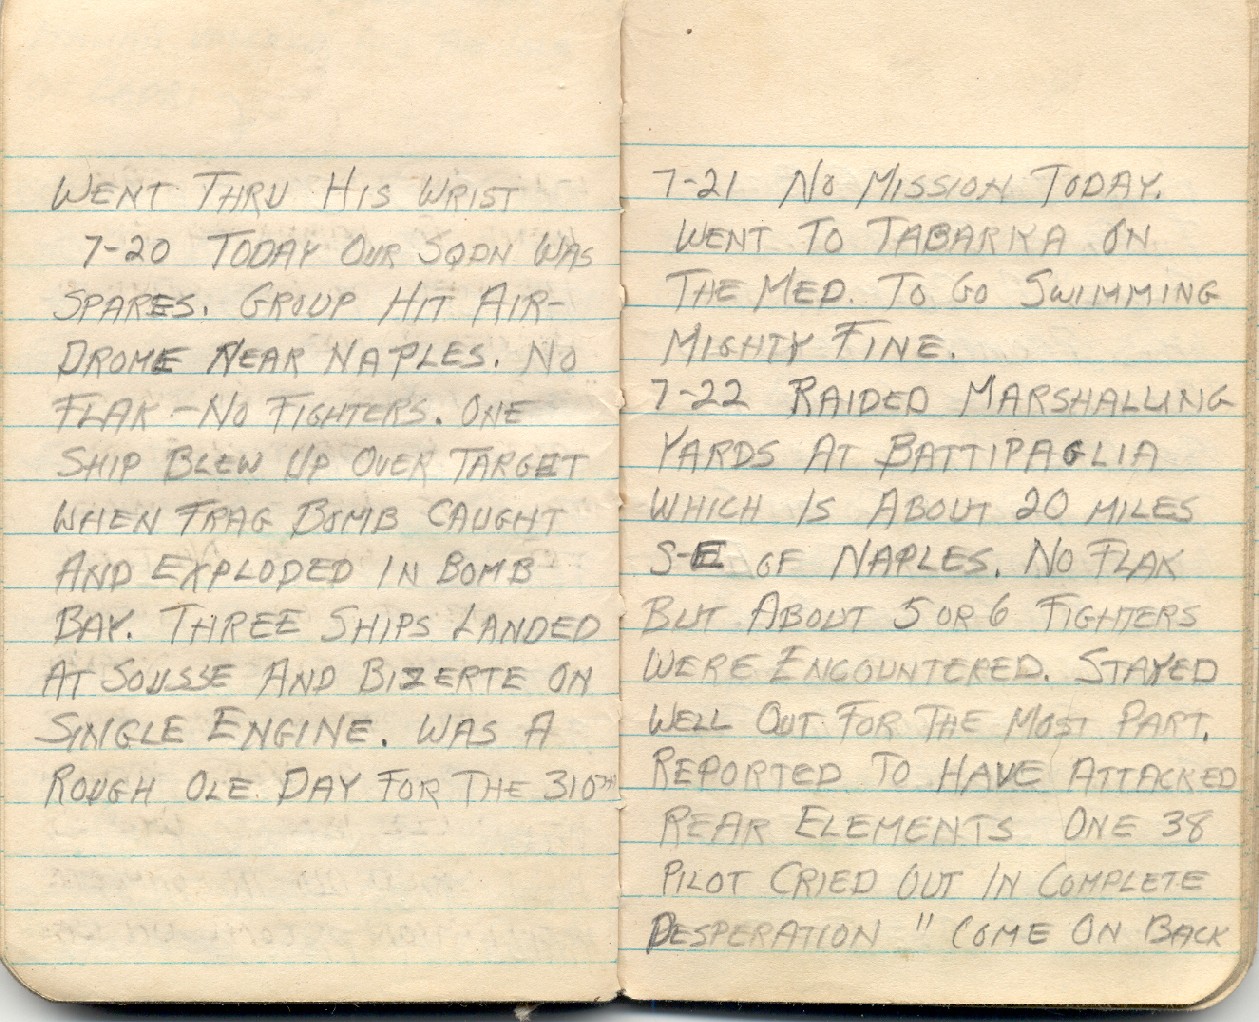 WENT THRU HIS WRIST
7-20 TODAY OUR SQDN WAS
SPARES. GROUP HIT AIR-
DROME NEAR NAPLES. NO
FLAK - NO FIGHTERS. ONE
SHIP BLEW UP OVER TARGET
WHEN FRAG BOMB CAUGHT
AND EXPLODED IN BOMB
BAY. THREE SHIPS LANDED
AT SOUSSE AND BIZERTE ON
SINGLE ENGINE. WAS A
ROUGH OLE DAY FOR THE 310TH
7-21 NO MISSION TODAY.
WENT TO TABARKA ON
THE MED. TO GO SWIMMING
MIGHTY FINE.
7-22 RAIDED MARSHALLING
YARDS AT BATTIPAGLIA
WHICH IS ABOUT 20 MILES
S-E OF NAPLES. NO FLAK
BUT ABOUT 5 OR 6 FIGHTERS
WERE ENCOUNTERED. STAYED
WELL OUT FOR THE MOST PART.
REPORTED TO HAVE ATTACKED
REAR ELEMENTS ONE 38
PILOT CRIED OUT IN COMPLETE
DESPERATION " COME ON BACK